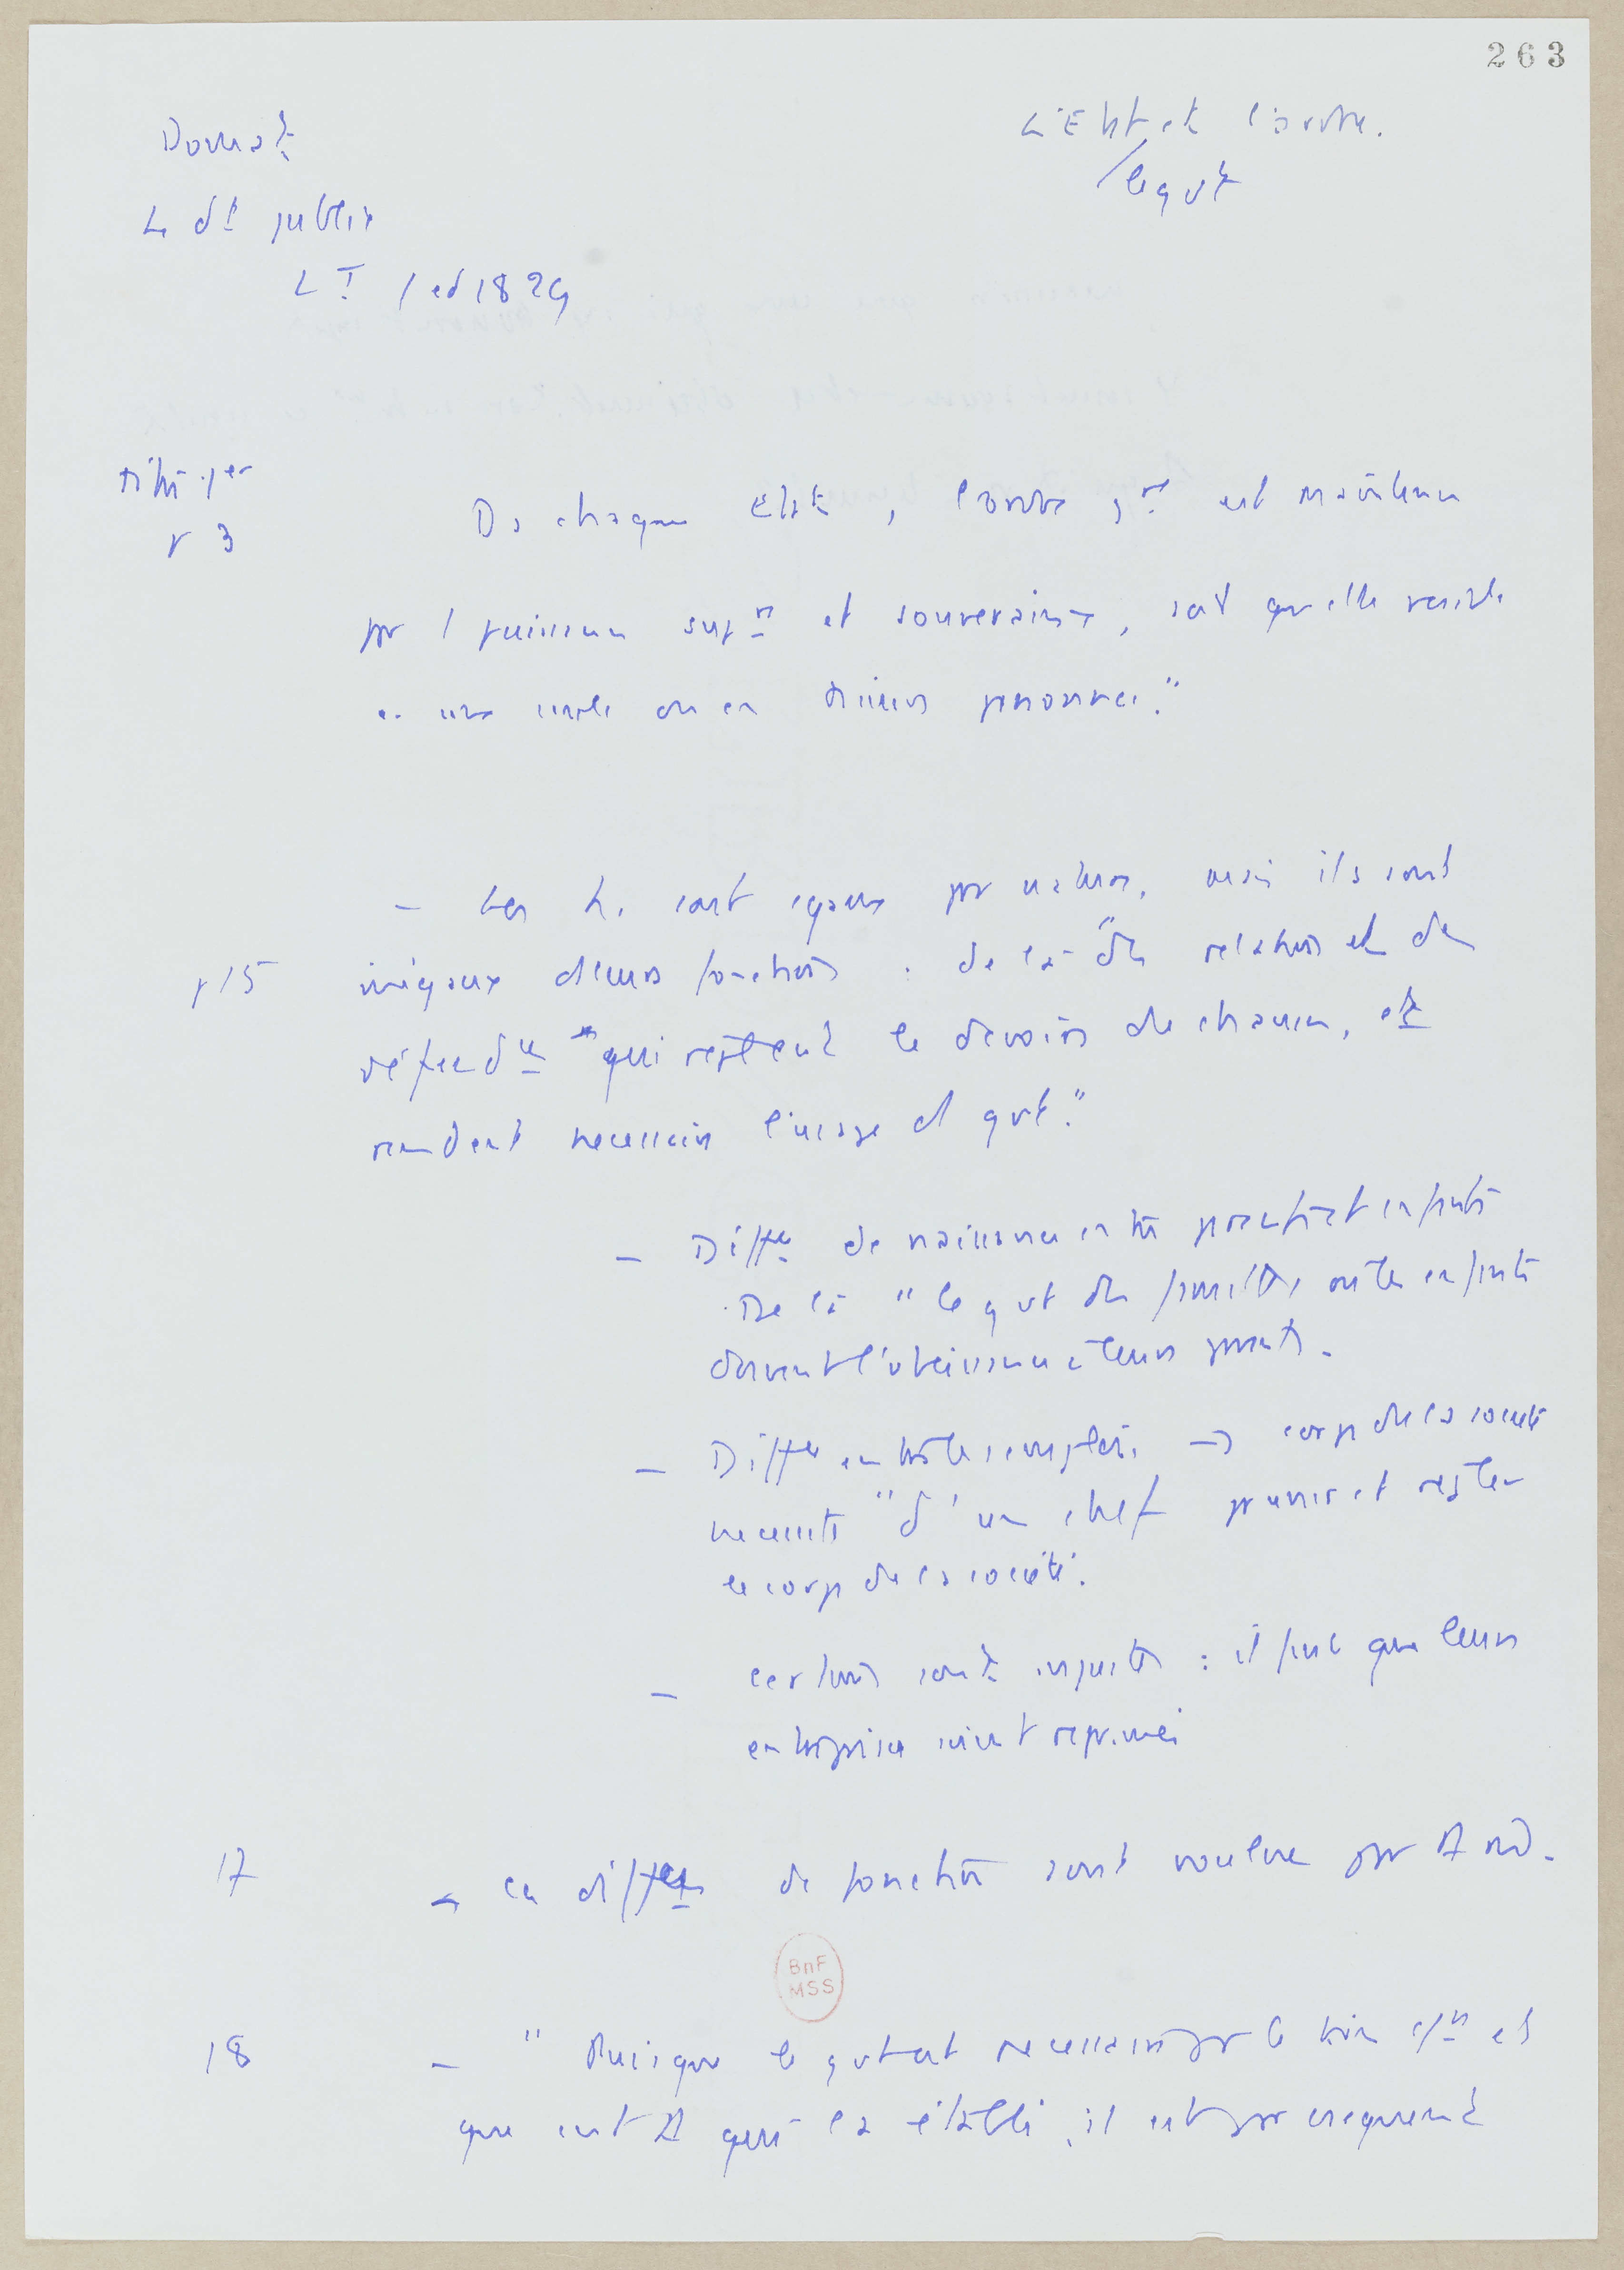 263
Domat
Le dt public
L I / ed 1829
L'Etat et l'ordre.
/ le gvt
Titre 1er
p 3
Ds chaque Etat, l'ordre est maintenu
par puissance et souveraine, soit qu'elle réside
en une seule ou en personnes."
- Les h. sont égaux par nature, mais ils sont
p 15
inégaux leurs fonctions : de là "des relations et des
qui règlent le devoirs de chacun, et
rendent necessaire l'usage d gvt."
- Diffce de naissance parents et enfants
De là "le gvt des familles où les enfants
doivent l'obéissance à leurs parents.
- Diffce entre les emplois. → corps de la société
necessité "d'un chef pr unir et regler
le corps de la société.
- certains sont injustes : il faut que leurs
entreprises soient reprimées
17
- ces diffces de fonctions sont voulues par
18
- " Puisque le gvt est necessaire pr le bien et
que c'est qui l'a établi, il est par
BnF
MSS